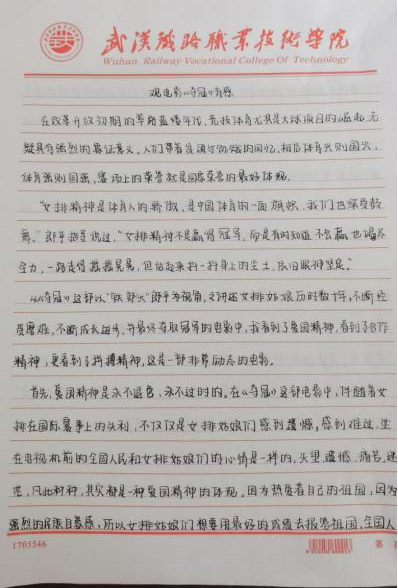 武汉铁路职业技术学院
Wuhan Railway Vocational College Of Technology
观电影《夺冠》有感
在改革开放初期的筚路蓝缕年代,竞技体育尤其是大球项目的崛起,无
疑具有强烈的象征意义。人们带着受屈的回忆,相信体育兴则国兴,
体育强则国强,赛场上的荣誉就是国家荣誉的最好体现。
“女排精神是体育人的骄傲,是中国体育的一面旗帜,我们也深受鼓
舞。”郎平指导说过,“女排精神不是赢得冠军,而是有时知道不会赢也竭尽
全力,一路走得摇摇晃晃,但站起来抖一抖身上的尘土,依旧眼神坚定。”
从《夺冠》这部以“铁榔头”郎平为视角,又讲述女排姑娘历时数十年,不断经
受磨难,不断成长进步,并最终夺取冠军的电影中,我看到了爱国精神,看到了合作
精神,更看到了拼搏精神,这是一部非常励志的电影。
首先,爱国精神是永不退色,永不过时的。在《夺冠》这部电影中,伴随着女
排在国际赛事上的失利,不仅仅是女排姑娘们感到遗憾,感到难过,坐
在电视机前的全国人民和女排姑娘们的心情是一样的,失望、遗憾、痛苦、迷
茫,凡此种种,其实都是一种爱国精神的体现,因为热爱着自己的祖国,因为
强烈的民族自尊感,所以女排姑娘们想要用最好的成绩去报答祖国,全国人
1705546
第